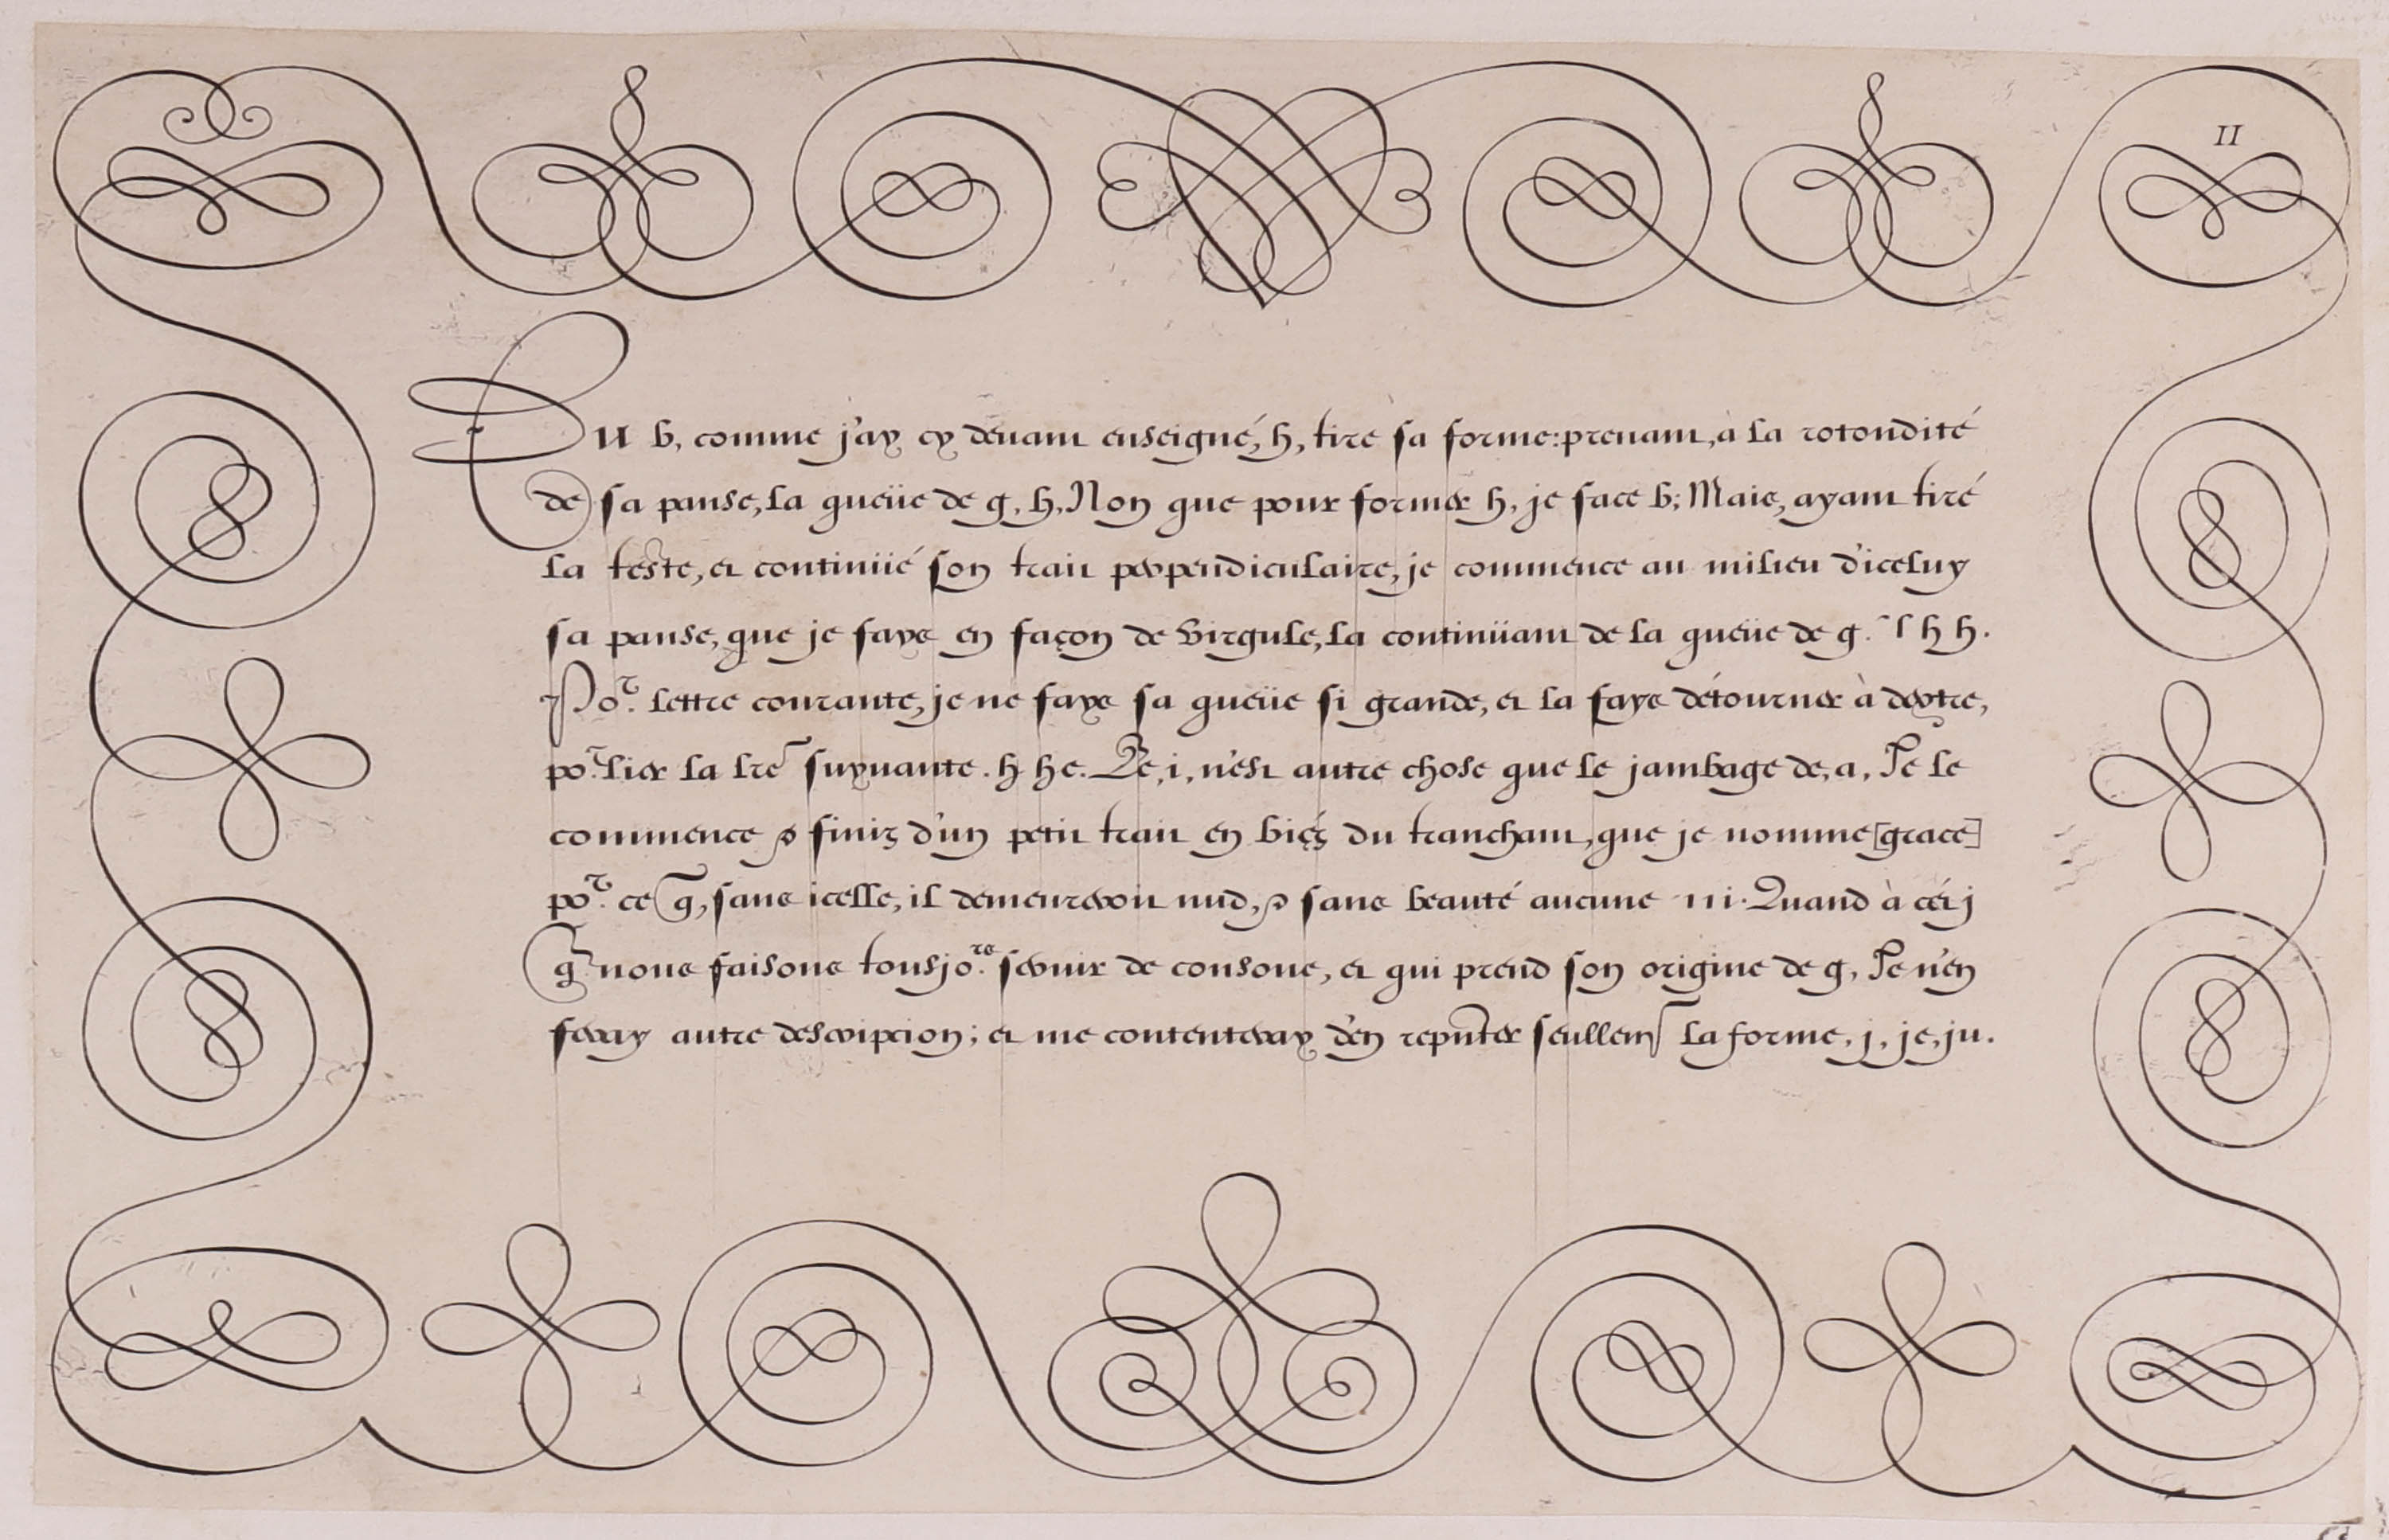 II
Du b, comme j'ay cy devant enseigné, h, tire sa forme: prenant, à la rotondité
de sa panse, la queüe de g, h, Non que pour former h, je face b; Mais, ayant tiré
la teste, et continüé son trait perpendiculaire, je commence au milieu d'iceluy
sa panse, que je fays en façon de virgule, la continüant de la queüe de g. l h h.
Po.r lettre courante, je ne fays sa queüe si grande, et la fays détourner à dextre,
po.r lier la lre suyvante. h he. Le, i, n'est autre chose que le jambage de, a, Je le
commence & finis d'un petit trait en biés du tranchant, que je nomme [grace]
po.r ce q̃, sans icelle, il demeureroit nud, & sans beauté aucune ı ı i. Quand à cét j
q̃ nous faisons tousjo.rs servir de consone, et qui prend son origine de g, Je n'en
feray autre descripcion; et me contenteray d'en repñter seullemt la forme, j, je, ju.